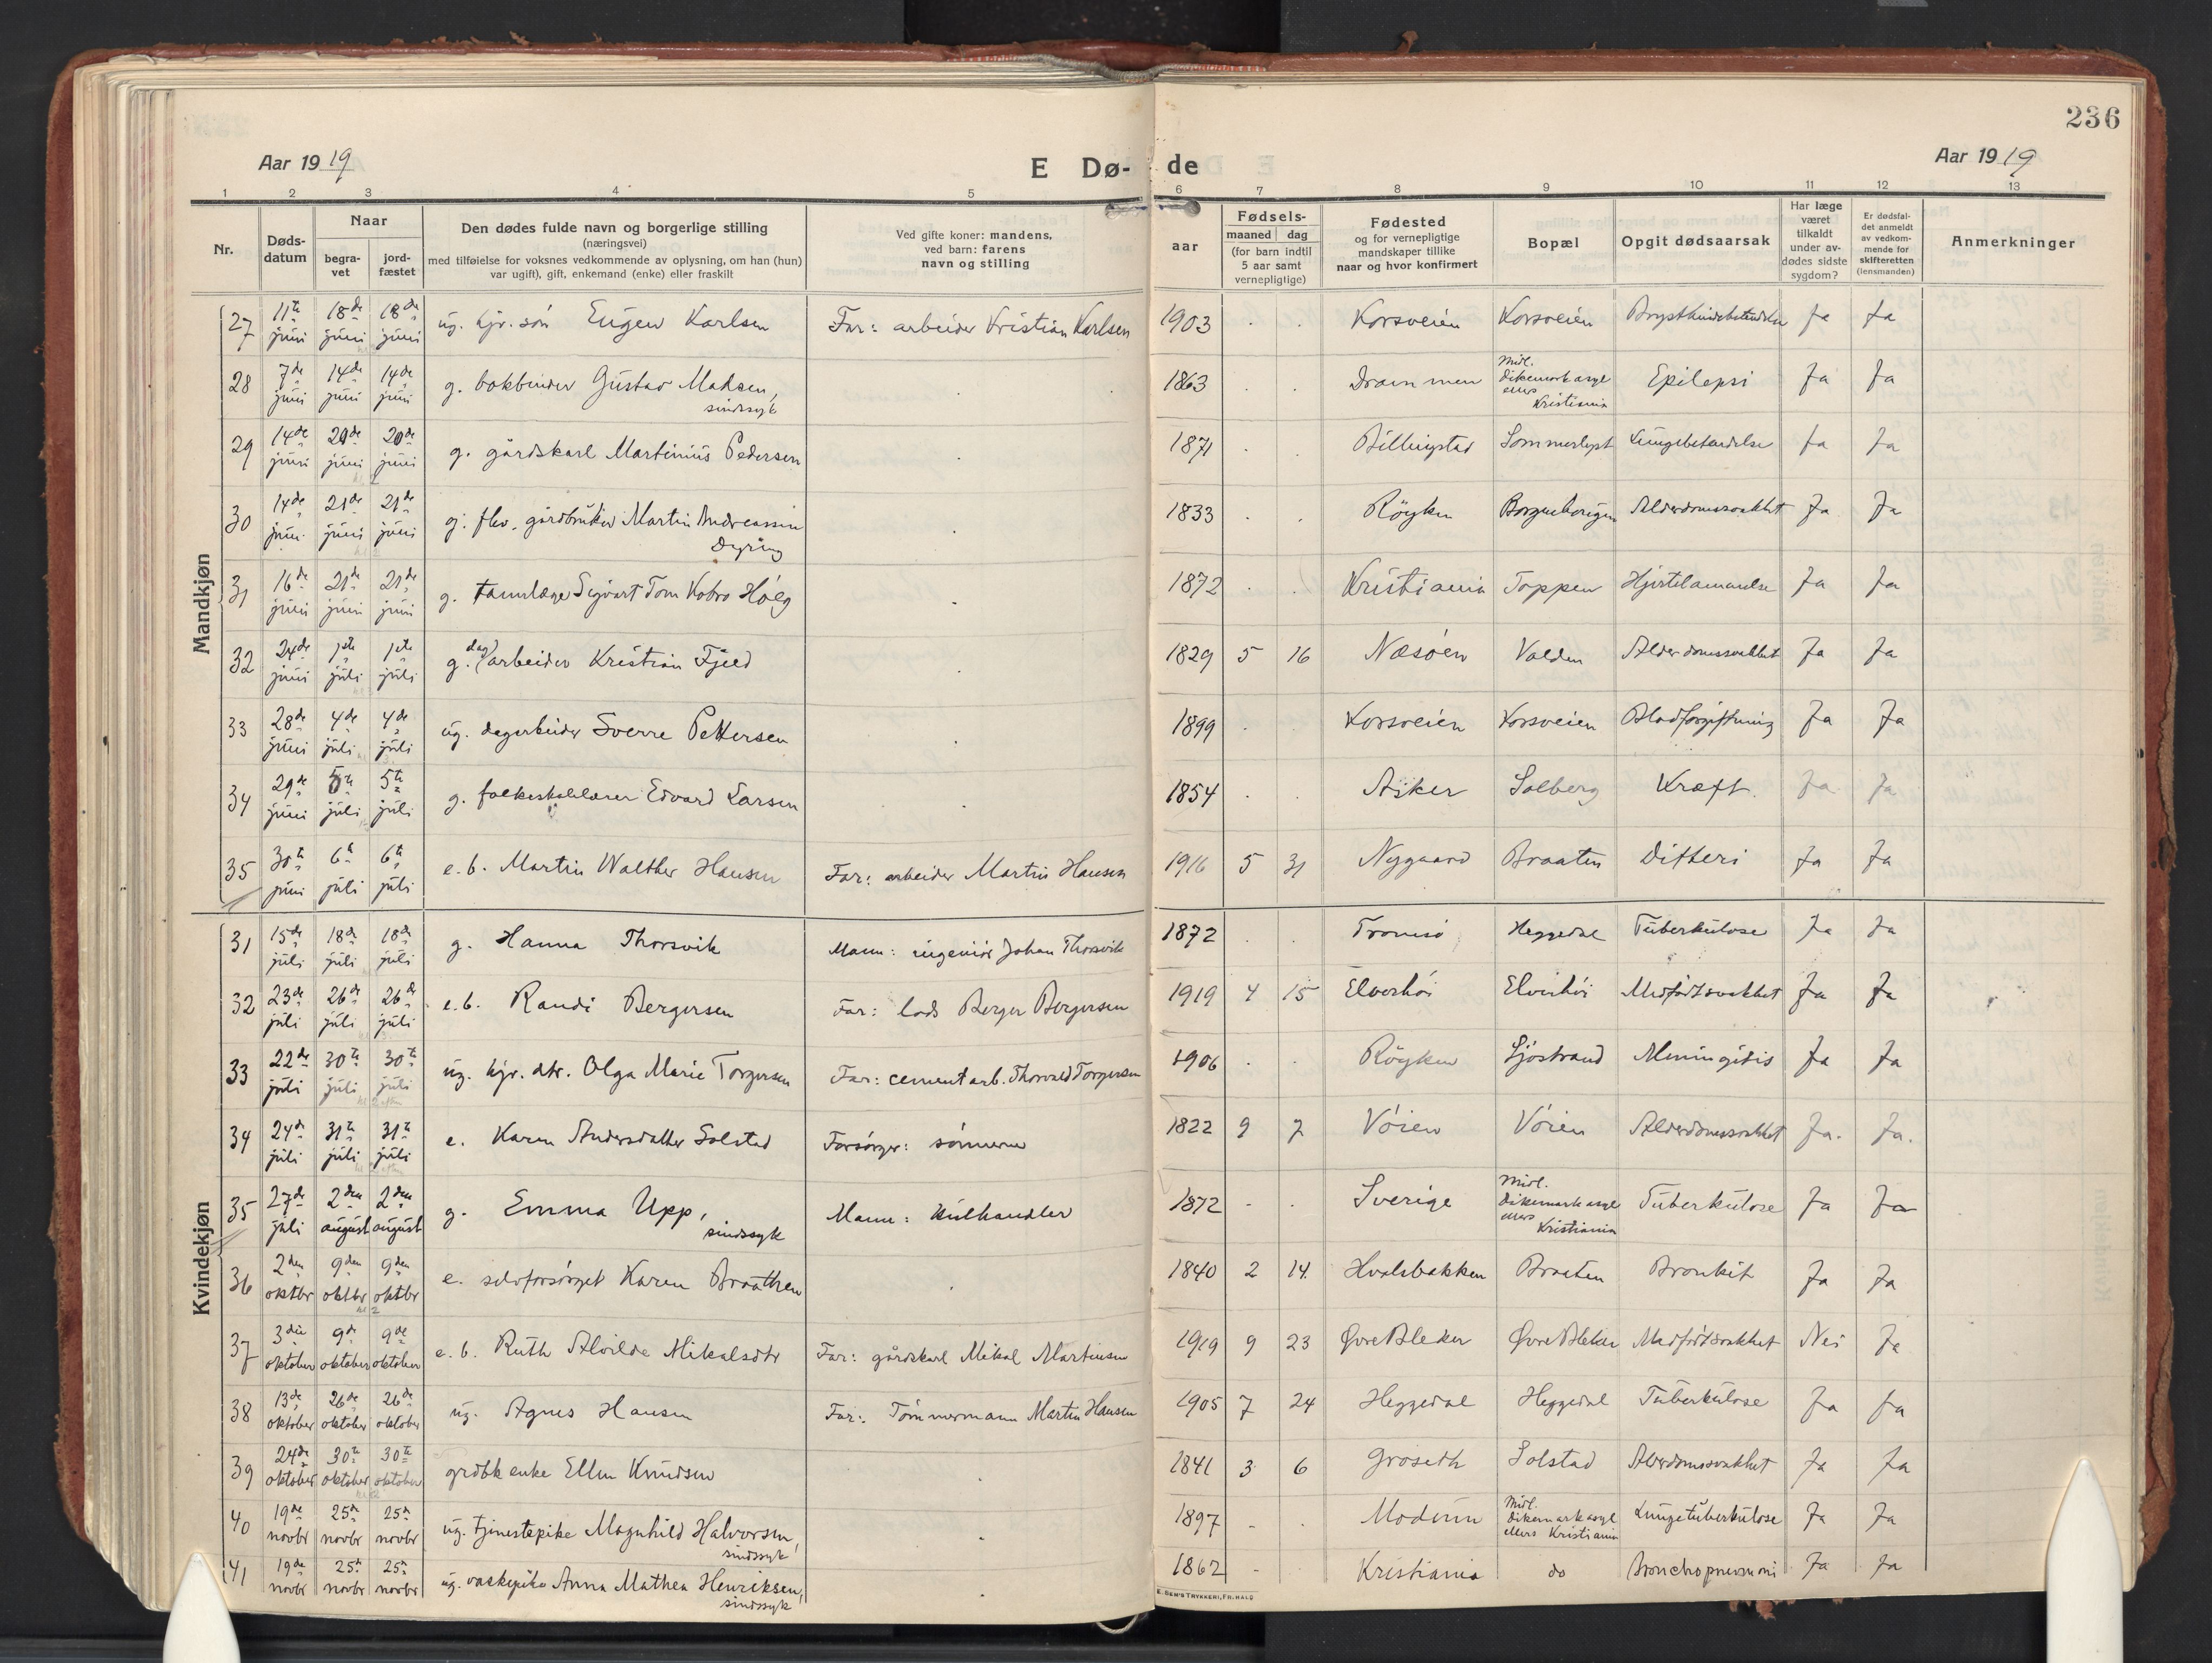 236
Aar 1919
E Dø-
de
Aar 1919
1 2 3 4 5 6 7 8 9 10 11 12 13
Nr.
Døds-
datum
Naar
begra-
vet
jord-
fæstet
Den dødes fulde navn og borgerlige stilling
(næringsvei)
med tilføielse for voksnes vedkommende av oplysning, om han (hun)
var ugift), gift, enkemand (enke) eller fraskilt
Ved gifte koner: mandens,
ved barn: farens
navn og stilling
aar
Fødsels-
maaned dag
(for barn indtil
5 aar samt
vernepligtige)
Fødested
og for vernepligtige
mandskaper tillike
naar og hvor konfirmert
Bopæl
Opgit dødsaarsak
Har læge
været
tilkaldt
under av-
dødes sidste
sygdom?
Er dødsfal-
det anmeldt
av vedkom-
mende for
skifteretten
(lensmanden)
Anmerkninger
Mandkjøn
27 11te juni 18de juni 18de juni ug. hjv. søn Eugen Karlsen Far: arbeider Kristian Karlsen 1903 Korsveien Korsveien Ja Ja
28 7de juni 14de juni 14de juni g. bokbinder Gustav Madsen, sindssyk 1863 Drammen Midl. Dikemark asyl ellers Kristiania Epilepsi Ja Ja
29 14de juni 20de juni 20de juni g. gårdskarl Martinius Pedersen 1871 Billingstad Lungebetendelse Ja Ja
30 14de juni 21de juni 21de juni g. flv. gårdbruker Martin Andreassen Dyring 1833 Røyken Alderdomssvakhet Ja Ja
31 16de juni 21de juni 21de juni g. tannlæge Sigvart Tom Kobro Høeg 1872 Kristiania Toppen Hjertelammelse Ja Ja
32 24de juni 1ste juli 1ste juli g. dagarbeider Kristian Fjeld 1829 5 16 Næsøen Valden Alderdomssvakhet Ja Ja
33 28de juni 4de juli 4de juli ug. dagarbeider Sverre Pettersen 1899 Korsveien Korsveien Blodforgiftning Ja Ja
34 29de juni 5te juli 5te juli g. folkeskolelærer Edvard Larsen 1854 Asker Solberg Kræft. Ja Ja
35 30te juni 6te juli 6te juli e.b. Martin Walther Hansen Far: arbeider Martin Hansen 1916 5 31 Nygaard Braaten Difteri Ja Ja
Kvindekjøn
31 15de juli 18de juli 18de juli g. Hanna Thorsvik Mann: ingeniør Johan Thorsvik 1872 Tromsø Heggedal Tuberkulose Ja Ja
32 23de juli 26de juli 26de juli e.b. Randi Bergersen Far: lods Berger Bergersen 1919 4 15 Elverhøi Elverhøi Medfødt svakhet Ja Ja
33 22de juli 30te juli 30te juli ug. hjv. dtr. Olga Marie Torgersen Far: cementarb. Thorvald Torgersen 1906 Røyken Sjøstrand Meningitis Ja Ja
34 24de juli 31te juli 31te juli e. Karen Andersdatter Solstad Forsørger: sønnerne 1822 9 7 Vøien Vøien Alderdomssvakhet Ja. Ja.
35 27de juli 2den august 2den august g. Emma Upp, sindssyk Mann: kulhandler 1872 Sverige Midl. Dikemark asyl ellers Kristiania Tuberkulose Ja Ja
36 2den oktbr 9den oktbr 9den oktbr e. selvforsørget Karen Braathen 1840 2 14. Hvalsbakken Braaten Bronkit Ja Ja
37 3die oktober 9de oktober 9de oktober e.b. Ruth Alvilde Mikalsdtr Far: gårdskarl Mikal Martinsen 1919 9 23 Øvre Bleker Øvre Bleker Medfødt svakhet Nei Ja
38 13de oktober 26de oktober 26de oktober ug. Agnes Hansen Far: Tømmermann Martin Hansen 1905 7 24 Heggedal Heggedal Tuberkulose Ja Ja
39 24de oktober 30te oktober 30te oktober grdbk enke Ellen Knudsen 1841 3 6 Groseth Solstad Alderdomssvakhet Ja Ja
40 19de novbr 25de novbr 25de novbr ug. tjenestepike Magnhild Halvorsen, sindssyk 1897 Modum Midl. Dikemark asyl ellers Kristiania Lungetuberkulose Ja Ja
41 19de novbr 25de novbr 25de novbr ug. vaskepike Anna Mathea Henriksen, sindssyk 1862 Kristiania do Bronchopneumoni Ja Ja
E. SEM'S TRYKKERI, FR.HALD